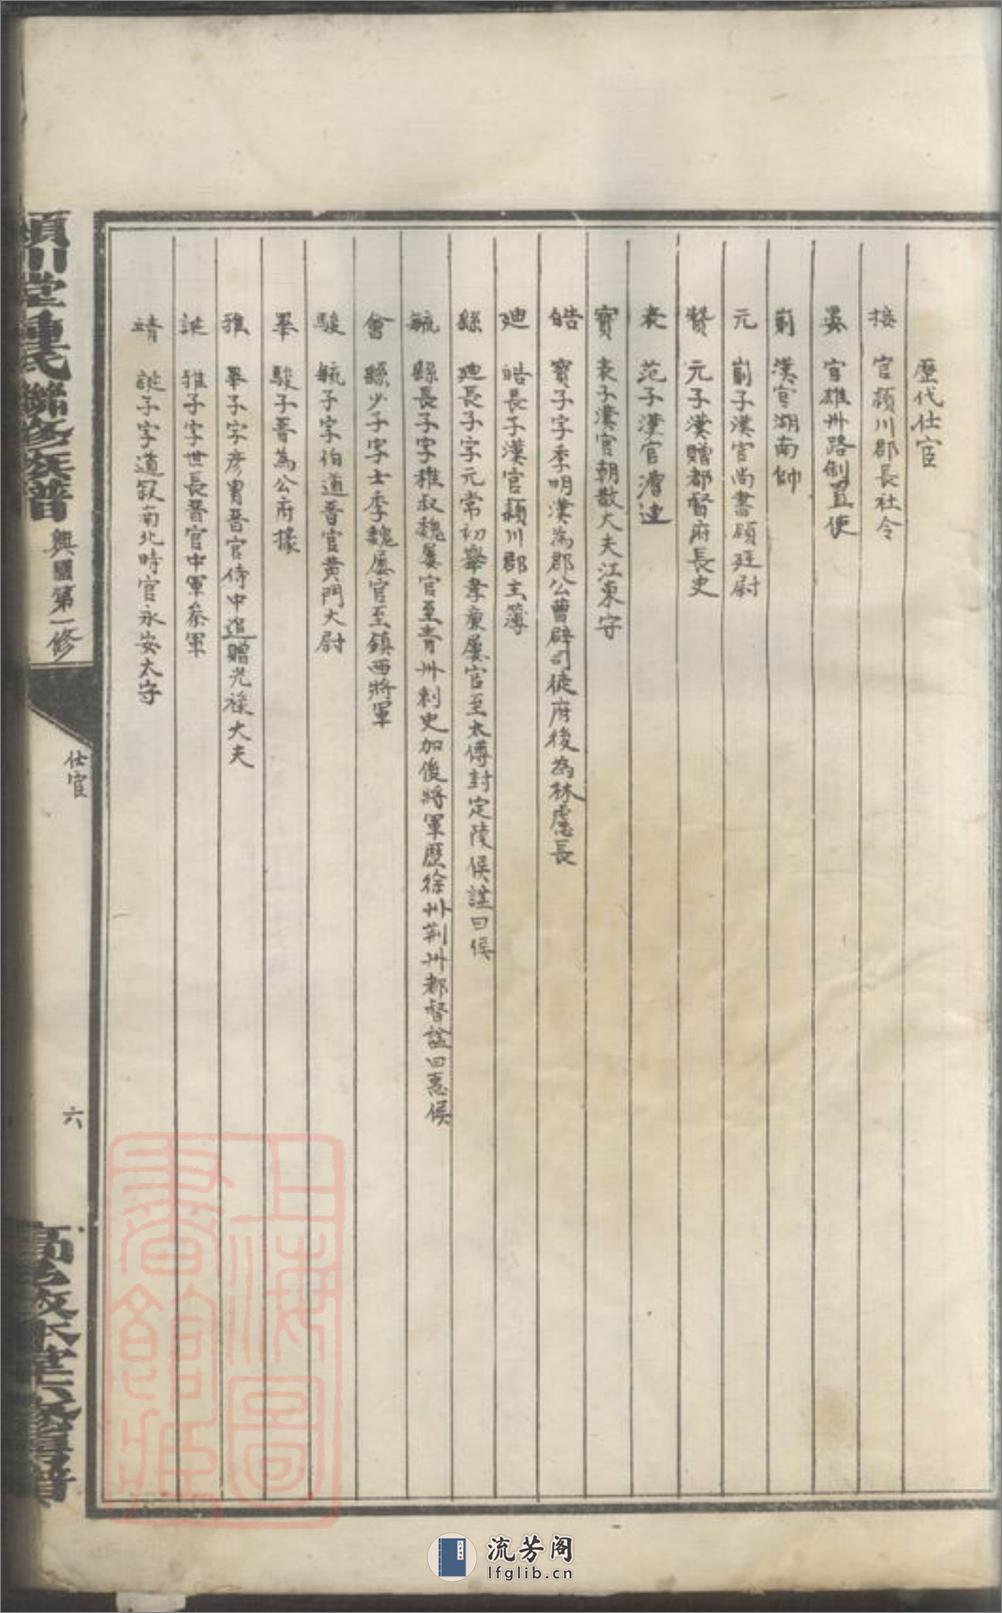 歷代仕宦
接 官潁川郡長社令
晏 官雄州路制置使
𠜱 漢官湖南帥
元 𠜱子漢官尚書顧廷尉
贊 元子漢贈都督府長史
表 范子漢官漕運
寶 表子漢官朝散大夫江東守
皓 寶子字季明漢為郡公曹辟司徒府後為林慮長
廸 皓長子漢官潁川郡主簿
繇 廸長子字元常初舉孝廉屢官至太傅封定陵侯諡曰侯
毓 繇長子字稚叔魏屢官至青州刺史加後將軍歷徐州荆州都督諡曰惠侯
會 繇少子字士季魏屢官至鎮西將軍
駿 毓子字伯道晉官黃門大尉
睪 駿子晉為公府掾
雅 睪子字彥冑晉官侍中追贈光祿大夫
誕 雅子字世長晉官中軍參軍
靖 誕子字道叙南北時官永安太守
潁川堂鍾氏聯修族譜
興國第一修
仕宦
六
上海圖書館藏
流芳阁
lfglib.cn